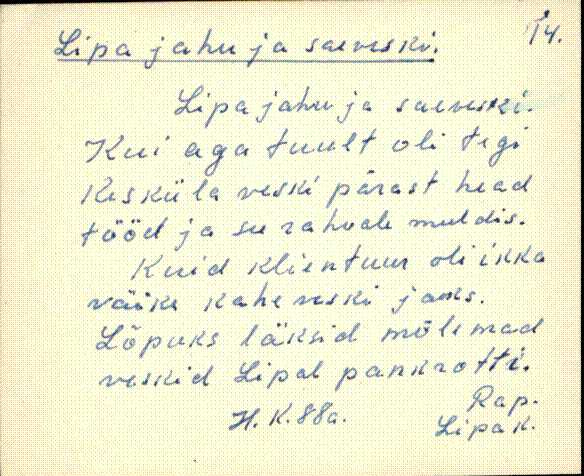 14.
Lipa jahu ja saeveski.
Lipa jahu ja saeveski.
Kui aga tuult oli tegi
Kesküla veski pärast head
tööd ja see rahvale meeldis.
Kuid klientuur oli ikka
väike kahe veski jaoks.
Lõpuks läksid mõlemad
veskid Lipal pankrotti.
H. K. 88a. Rap.
Lipa k.